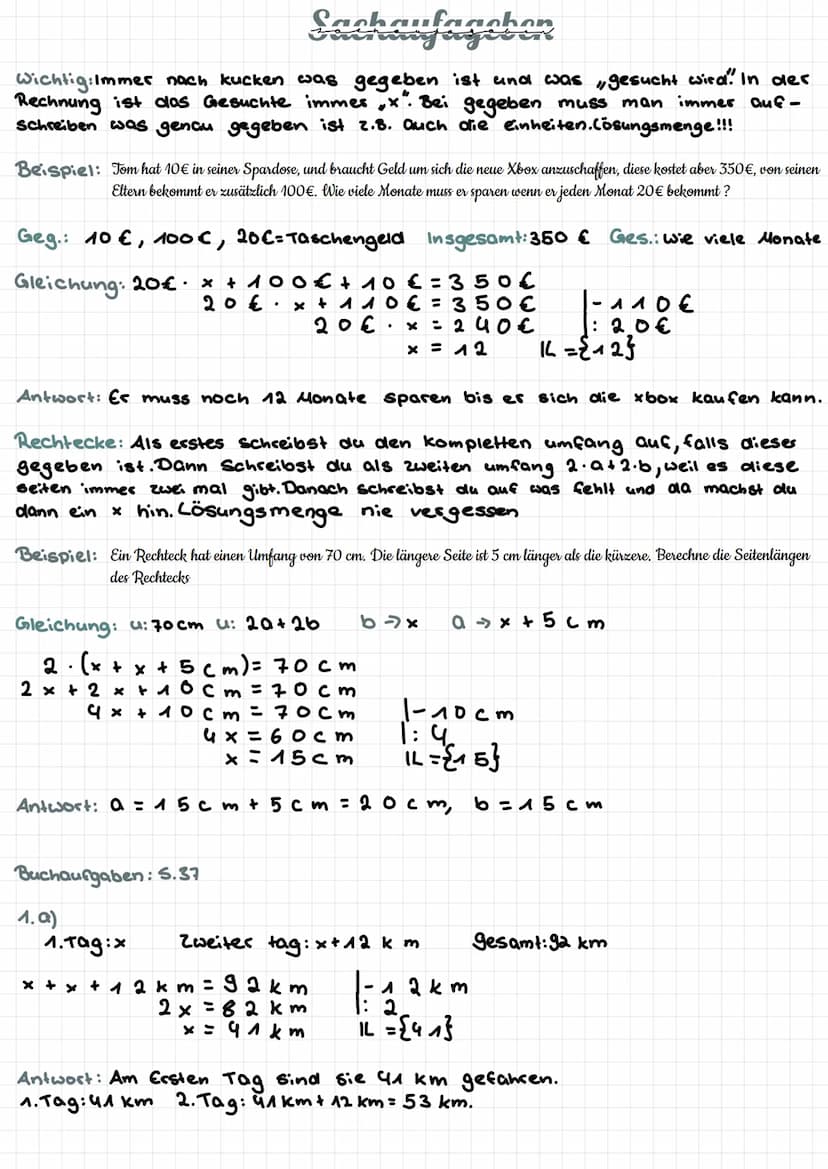 Sachaufageben
sachaufageben
Wichtig: Immer nach kucken was gegeben ist und was „gesucht wird". In der
Rechnung ist das Gesuchte immer „x". Bei gegeben muss man immer auf-
schreiben was genau gegeben ist z.B. auch die Einheiten. Lösungsmenge!!!
Beispiel: Tom hat 10€ in seiner Spardose, und braucht Geld um sich die neue Xbox anzuschaffen, diese kostet aber 350€, von seinen
Eltern bekommt er zusätzlich 100€. Wie viele Monate muss er sparen wenn er jeden Monat 20€ bekommt ?
Geg.: 10 €, 100€, 20€=Taschengeld Insgesamt: 350 € Ges.: Wie viele Monate
Gleichung: 20€ · x + 100€ + 10 € = 350€
20 € · x + 110€ = 350€ |-110€
20€ · x = 240€ |: 20€
x = 12 𝕃 ={12}
Antwort: Er muss noch 12 Monate sparen bis er sich die xbox kaufen kann.
Rechtecke: Als erstes schreibst du den kompletten umfang auf, falls dieser
gegeben ist. Dann Schreibst du als zweiten umfang 2·a+2·b, weil es diese
seiten immer zwei mal gibt. Danach schreibst du auf was fehlt und da machst du
dann ein x hin. Lösungsmenge nie vergessen
Beispiel: Ein Rechteck hat einen Umfang von 70 cm. Die längere Seite ist 5 cm länger als die kürzere. Berechne die Seitenlängen
des Rechtecks
Gleichung: u: 70cm u: 2a+2b b → x a → x + 5 cm
2 · (x + x + 5 cm) = 70 cm
2 x + 2 x + 10 cm = 70 cm
4 x + 10cm = 70cm |-10cm
4x = 60cm |: 4
x = 15cm 𝕃 ={15}
Antwort: a = 15 cm + 5 cm = 20 cm, b = 15 cm
Buchaufgaben: S.37
1. a)
1. Tag: x Zweiter tag: x+12 km gesamt: 92 km
x + x + 12 km = 92km |-12km
2x = 82km |: 2
x = 41km 𝕃 ={41}
Antwort: Am Ersten Tag sind sie 41 km gefahren.
1. Tag: 41 km 2. Tag: 41 km + 12 km = 53 km.